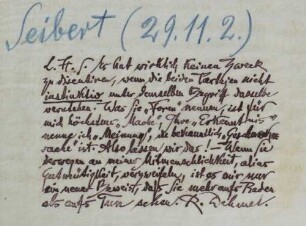 Seibert (29.11.2.)
L. H. S. Es hat wirklich keinen Zweck
zu discutiren, wenn die beiden Parteien nicht
instinktiv unter demselben Begriff dasselbe
verstehen. Was Sie „Form" nennen, ist für
mich höchstens „Mache", Ihre „Erkenntnis"
nenne ich „Meinung", die bekanntlich
ist. Also lassen wir das! — Wenn Sie
deswegen an meiner Mitmenschlichkeit, alias
Gutmütigkeit, verzweifeln, ist es mir nur
ein neuer Beweis, daß Sie mehr aufs Reden
als aufs Tun sehen. R. Dehmel.